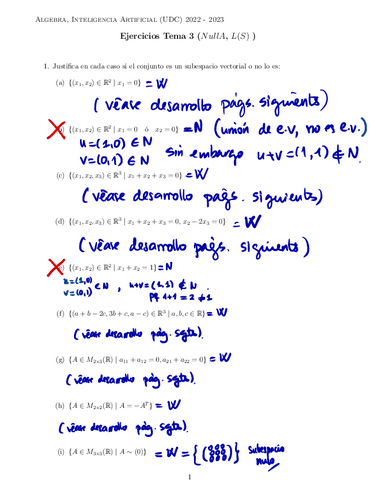 Algebra, Inteligencia Artificial (UDC) 2022 - 2023
Ejercicios Tema 3 (NullA, L(S) )
1. Justifica en cada caso si el conjunto es un subespacio vectorial o no lo es:
(a) {(x₁, x₂) ∈ ℝ² | x₁ = 0} = W
(véase desarrollo págs. siguients)
{(x₁, x₂) ∈ ℝ² | x₁ = 0 ó x₂ = 0} = N (unión de e.v, no es e.v.)
u = (1,0) ∈ N
v = (0,1) ∈ N sin embargo u+v = (1,1) ∉ N.
(c) {(x₁, x₂, x₃) ∈ ℝ³ | x₁ + x₂ + x₃ = 0} = W
(véase desarrollo págs. siguients)
(d) {(x₁, x₂, x₃) ∈ ℝ³ | x₁ + x₂ + x₃ = 0, x₂ − 2x₃ = 0} = W
(véase desarrollo págs. siguients)
{(x₁, x₂) ∈ ℝ² | x₁ + x₂ = 1} = N
u = (1,0)
v = (0,1) ∈ N , u+v = (1,1) ∉ N.
pq 1+1 = 2 ≠ 1
(f) {(a + b − 2c, 3b + c, a − c) ∈ ℝ³ | a, b, c ∈ ℝ} = W
(véase desarollo pág. sgte).
(g) {A ∈ M₂ₓ₃(ℝ) | a₁₁ + a₁₂ = 0, a₂₁ + a₂₂ = 0} = W
(véase desarollo pág. sgte).
(h) {A ∈ M₂ₓ₂(ℝ) | A = −Aᵀ} = W
(véase desarollo pág. sgte).
(i) {A ∈ M₃ₓ₃(ℝ) | A ∼ (0)} = W = {(000 000 000)} Subespacio
nulo
1